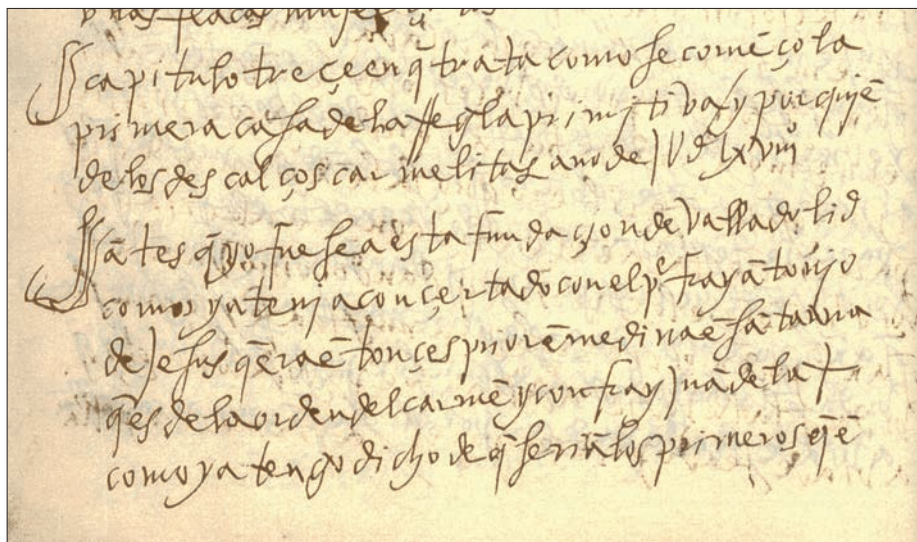 capitulo treçe en q̄ trata como se comēço la
primera casa de la rregla primitiva y por quiē
de los descalços carmelitas año de IUdlxviii
ātes q̄ yo fuese a esta fundaçion de valladolid
como ya tenia conçertado con el pᵉ fray ātonyo
de Jesus q̄ era ētonçes prior ē medina ē sātana
q̄ es de la orden del carmē y con fray Juā de la +
como ya tengo dicho de q̄ seriā los primeros q̄ ē